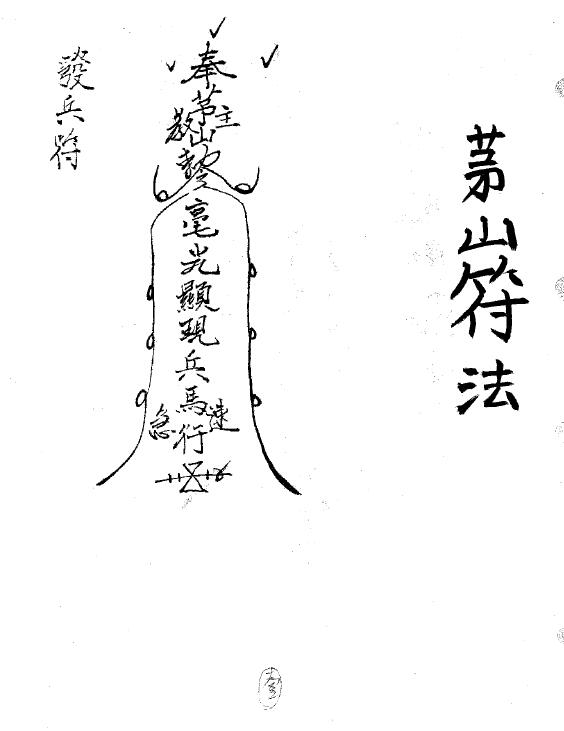 茅山符法
發兵符
奉
茅山
教主
毫光顯現兵馬行
急速